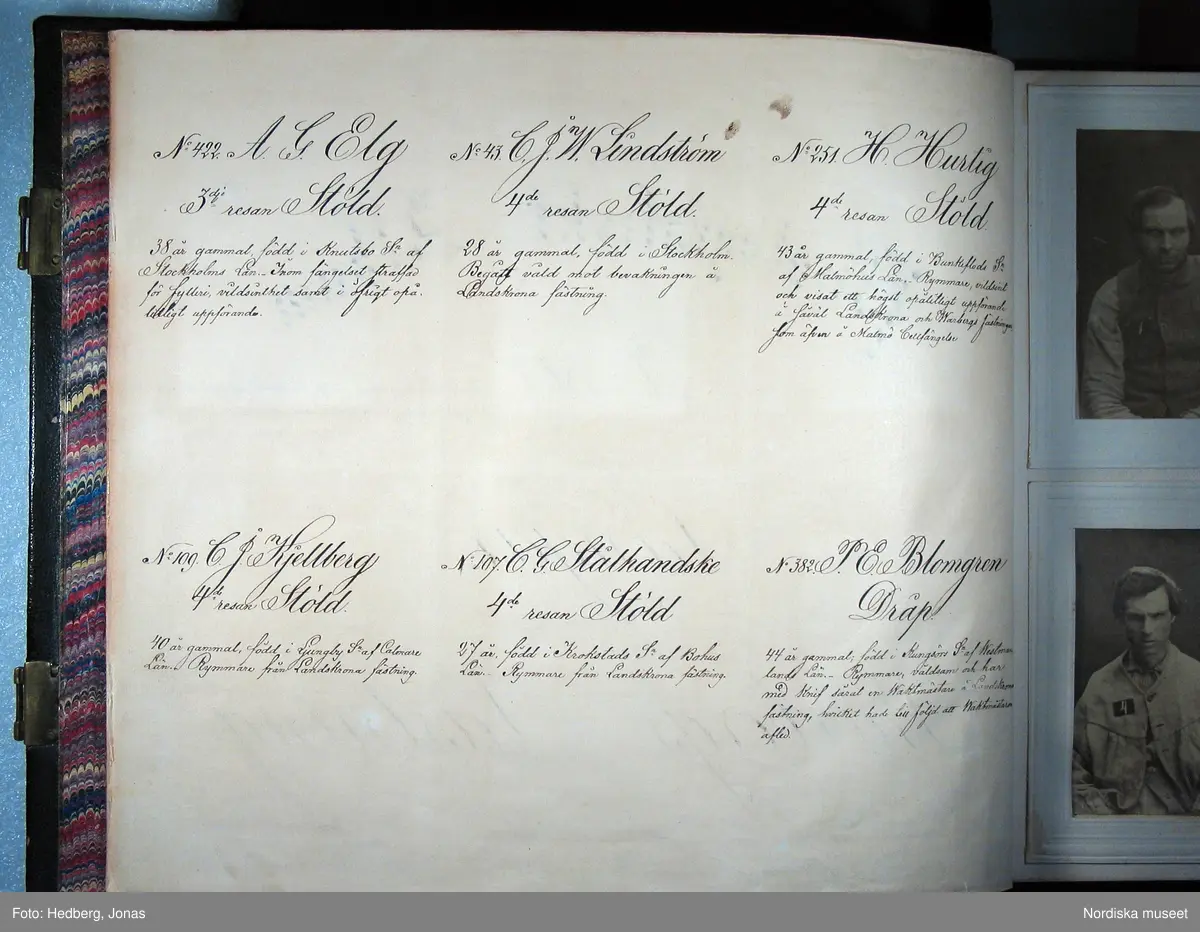 No 422. A. G. Elg
3dje resan Stöld.
38 år gammal, född i Knutsbo Sn af
Stockholms Län.- Inom fängelset straffad
för fylleri, vildsinthet samt i öfrigt opå-
litligt uppförande.
No 43. C. J. W. Lindström
4de resan Stöld.
28 år gammal, född i Stockholm.
Begått våld mot bevakningen å
Landskrona fästning.
No 251. H. Hurtig
4de resan Stöld.
43 år gammal, född i Bunkeflods Sn
af Malmöhus Län.- Rymmare, vildsint
och visat ett högst opålitligt uppförande
å såväl Landskrona och Warbergs fästningar
som äfven å Malmö Cellfängelse
No 109. C. J. Kjellberg
4de resan Stöld.
40 år gammal, född i Ljungby Sn af Calmare
Län.- Rymmare från Landskrona fästning.
No 107. C. G. Stålhandske
4de resan Stöld
27 år, född i Krokstads Sn af Bohus
Län.- Rymmare från Landskrona fästning.
No 382. P. E. Blomgren
Dråp.
44 år gammal, född i Kungsörs Sn af Westman-
lands Län.- Rymmare, våldsam och har
med Knif sårat en Waktmästare å Landskrona
fästning, hvilket hade till följd att Waktmästaren
afled.
4
Foto: Hedberg, Jonas
Nordiska museet